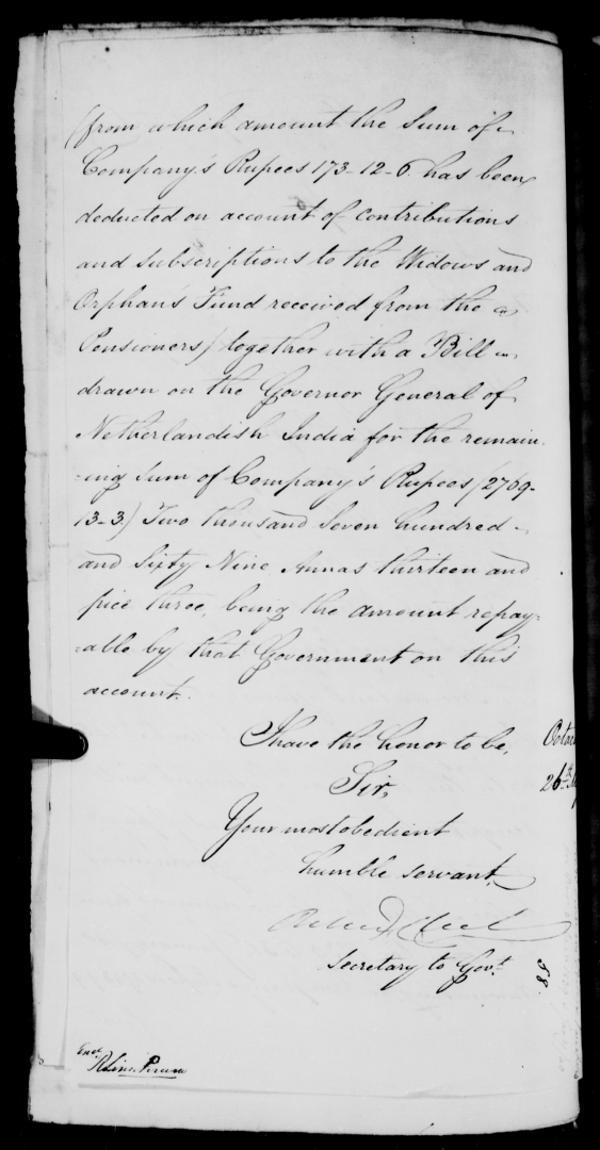 (from which amount the Sum of
Company's Rupees 173-12-6 has been
deducted on account of contributions
and subscriptions to the Widows and
Orphan's Fund received from the
Pensioners) together with a Bill
drawn on the Governor General of
Netherlandish India for the remain-
-ing Sum of Company's Rupees (2769-
13-3.) Two thousand Seven hundred
and Sixty Nine Annas thirteen and
pice three, being the amount repay-
-able by that Government on this
account.
I have the honor to be,
Sir,
Your most obedient
humble servant,
Secretary to Govt.
26th